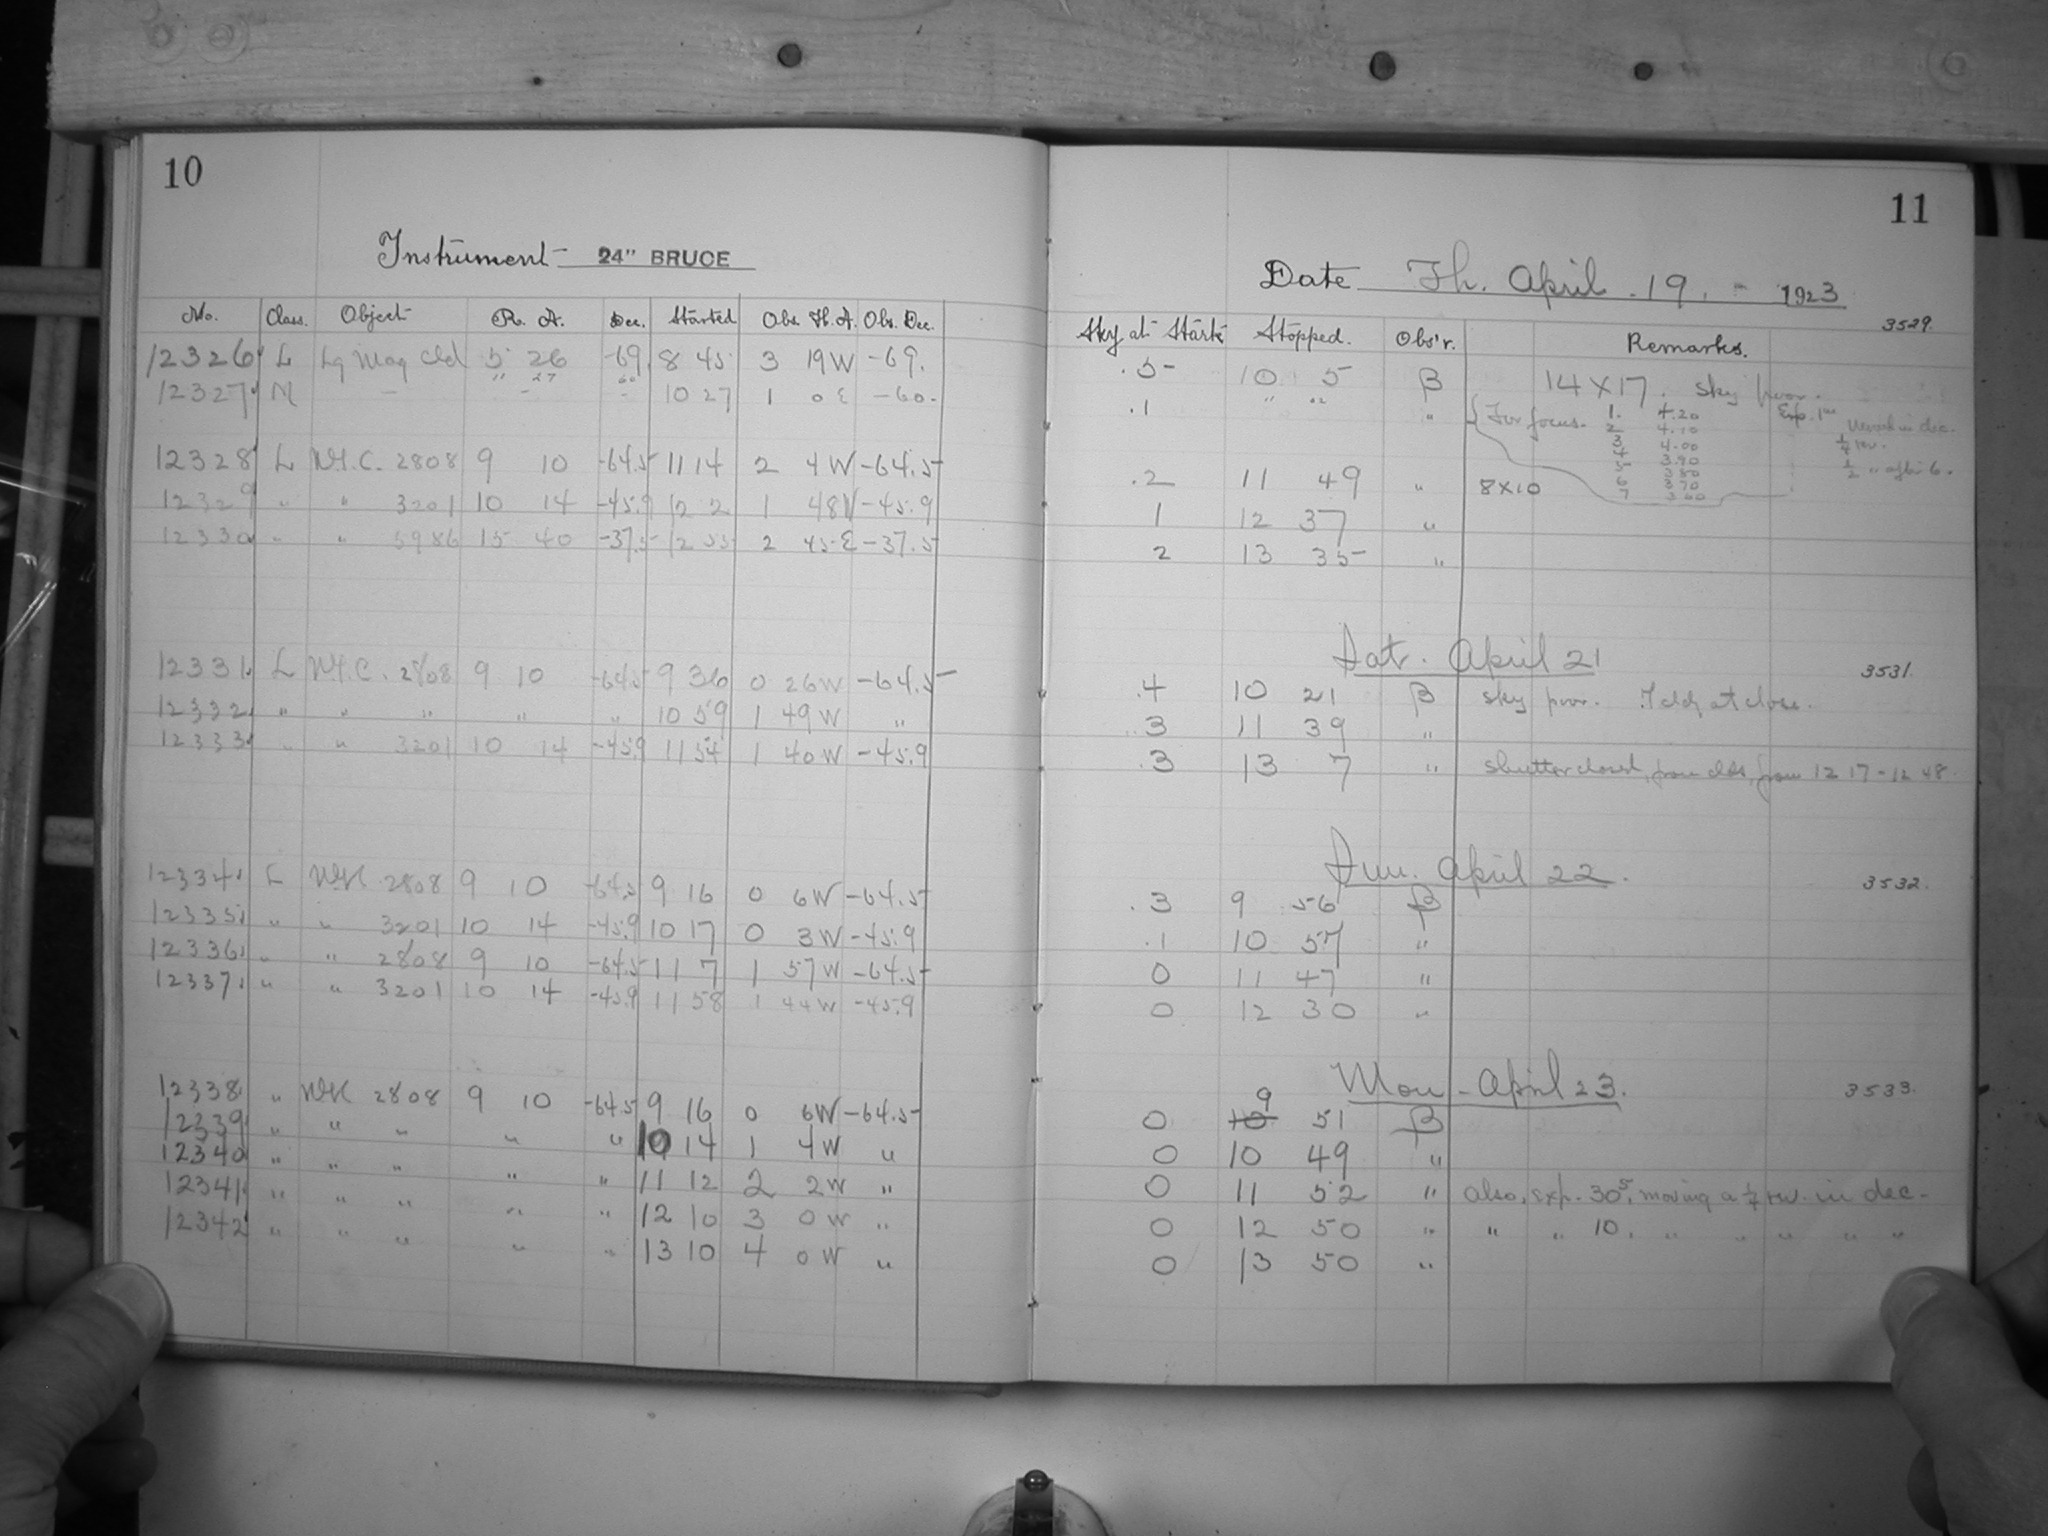 10
Instrument 24" BRUCE
No. Class. Object R. A. Dec. Started Obs. H. A. Obs. Dec.
12326 L Lg Mag Cld 5 26 -69 8 45 3 19W -69.
12327 M — " 27 - 10 27 1 0 E -60.
12328 L N.G.C. 2808 9 10 -64.5 11 14 2 4W -64.5
12329 " " 3201 10 14 -45.9 12 2 1 48W -45.9
12330 " " 5986 15 40 -37.5 12 55 2 45 E -37.5
12331 L N.G.C. 2808 9 10 -64.5 9 36 0 26W -64.5
12332 " " " " " 10 59 1 49W "
12333 " " 3201 10 14 -45.9 11 54 1 40W -45.9
12334 L NGC 2808 9 10 -64.5 9 16 0 6W -64.5
12335 " " 3201 10 14 -45.9 10 17 0 3W -45.9
12336 " " 2808 9 10 -64.5 11 7 1 57W -64.5
12337 " " 3201 10 14 -45.9 11 58 1 44W -45.9
12338 " NGC 2808 9 10 -64.5 9 16 0 6W -64.5
12339 " " " " " 10 14 1 4W "
12340 " " " " " 11 12 2 2W "
12341 " " " " " 12 10 3 0W "
12342 " " " " " 13 10 4 0W "
11
Date Th. April 19. - 1923
3529
Sky at Start Stopped. Obs'r. Remarks.
.5 10 5 B 14 X 17. Sky poor.
.1 " " " For focus. 1. 4.20 Exp. 1m
2 4.10 Moved in dec.
3 4.00 1/4 rev.
4 3.90 1/2 " after 6.
5 3.80
6 3.70
7 3.60
.2 11 49 " 8X10
1 12 37 "
2 13 35 "
Sat. April 21 3531.
.4 10 21 B sky poor. Cldy at close.
.3 11 39 "
.3 13 7 " shutter closed, from clds, from 12 17 - 12 48
Sun. April 22. 3532.
.3 9 56 B
.1 10 57 "
0 11 47 "
0 12 30 "
Mon. April 23. 3533.
0 10 9 51 B
0 10 49 "
0 11 52 " also, exp. 30s, moving a 1/4 rev. in dec.
0 12 50 " " " 10. " " " " "
0 13 50 "